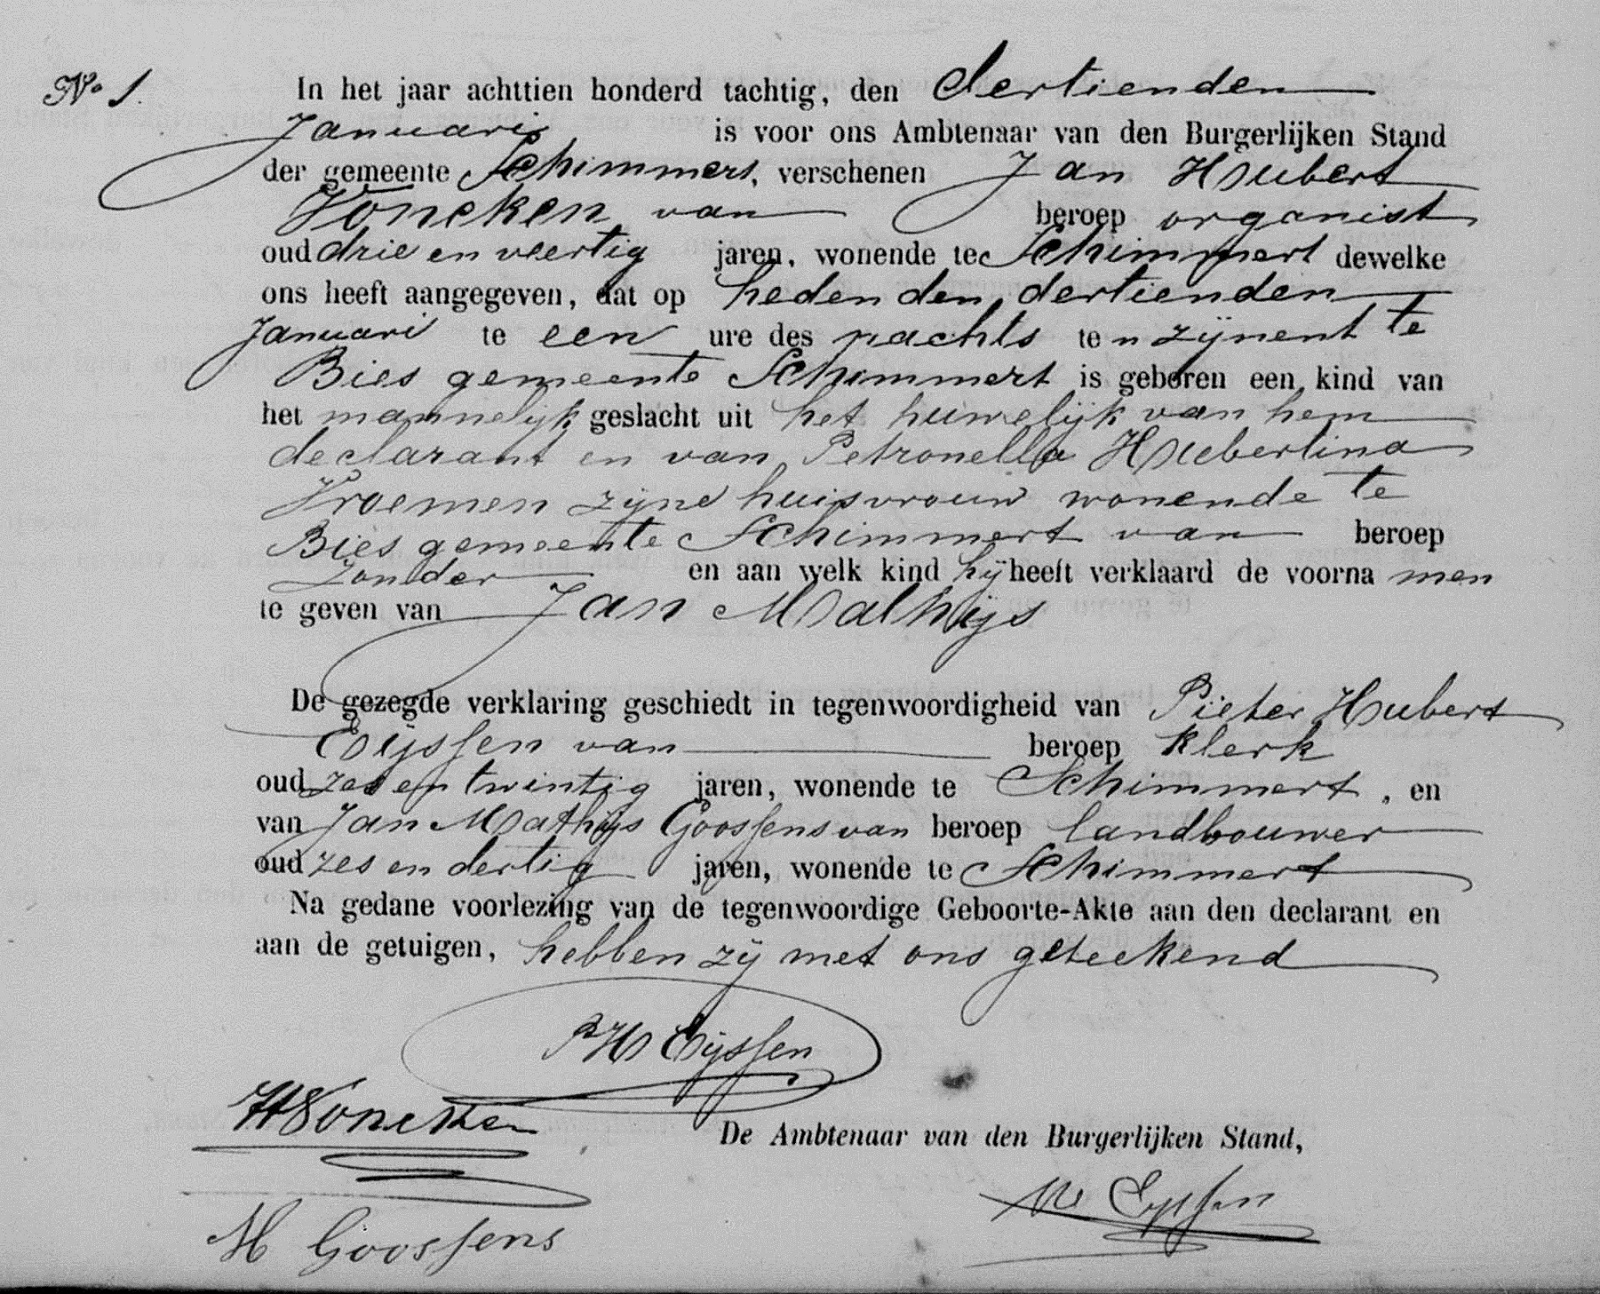 No 1.
In het jaar achttien honderd tachtig, den dertienden
Januari is voor ons Ambtenaar van den Burgerlijken Stand
der gemeente Schimmert, verschenen Jan Hubert
Voncken van beroep organist
oud drie en veertig jaren, wonende te Schimmert dewelke
ons heeft aangegeven, dat op heden den dertienden
Januari te een ure des nachts ten zijnent te
Bies gemeente Schimmert is geboren een kind van
het mannelijk geslacht uit het huwelijk van hem
declarant en van Petronella Hubertina
Vroemen zijne huisvrouw wonende te
Bies gemeente Schimmert van beroep
Zonder en aan welk kind hij heeft verklaard de voorna men
te geven van Jan Mathijs
De gezegde verklaring geschiedt in tegenwoordigheid van Pieter Hubert
Eijssen van beroep klerk
oud zes en twintig jaren, wonende te Schimmert, en
van Jan Mathijs Goossens van beroep landbouwer
oud zes en dertig jaren, wonende te Schimmert
Na gedane voorlezing van de tegenwoordige Geboorte-Akte aan den declarant en
aan de getuigen, hebben zij met ons geteekend
PH Eijssen
JHVoncken
De Ambtenaar van den Burgerlijken Stand,
W Eyssen
M Goossens